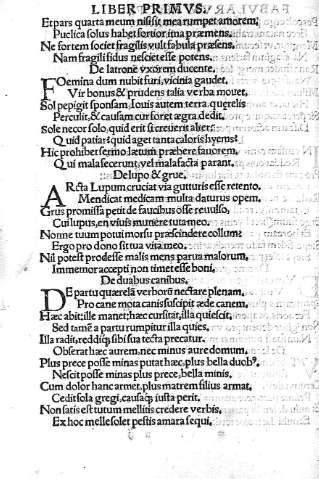 LIBER PRIMVS.
Et pars quarta meum nisi sit mea rumpet amorem,
Puelica solus habet fortior ima præmens.
Ne fortem societ fragilis vult fabula præsens,
Nam fragili fidus nesciet esse potens.
De latrone vxorem ducente.
FOemina dum nubit furi, vicinia gaudet,
Vir bonus & prudens talia verba mouet,
Sol pepigit sponsam, Iouis autem terra querelis
Perculit, & causam cur foret ægra dedit.
Sole necor solo, quid erit si creuerit alter:
Quid patiar: quid aget tanta caloris hyems?
Hic prohibet sermo lætum præbere fauorem,
Qui mala fecerunt, vel mala facta parant.
De lupo & grue.
ARcta Lupum cruciat via gutturis esse retento.
Mendicat medicam multa daturus opem.
Grus promissa petit de faucibus osse reuulso,
Cui lupus, en viuis munere tuta meo.
Nonne tuum potui morsu præscindere collum?
Ergo pro dono sit tua vita meo.
Nil potest prodesse malis mens parua malorum,
Immemor accepti non timet esse boni,
De duabus canibus.
DE partu quærelā verborū nectare plenam,
Pro cane mota canis suscipit æde canem.
Hæc abit: ille manet; hæc cursitat, illa quiescit,
Sed tamē a partu rumpitur illa quies,
Illa radit, reddiq; sibi sua tecta precatur.
Obserat hæc aurem, nec minus aure domum,
Plus prece posse minas putat hæc, plus bella duobꝰ,
Nescit posse minas plus prece, bella minis,
Cum dolor hanc armet, plus matrem filius armat,
Cedit sola gregi, causaq; iusta perit.
Non satis est tutum mellitis credere verbis,
Ex hoc melle solet pestis amara sequi,